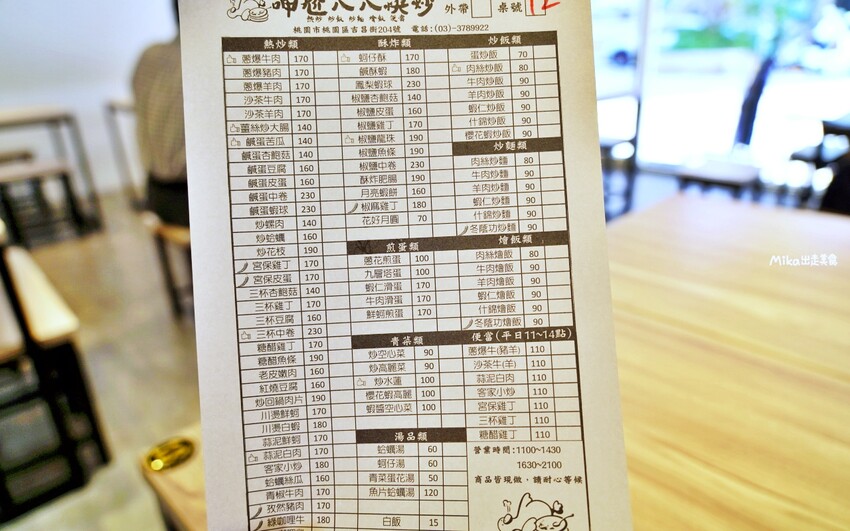 呷粗八八熱炒
外帶 桌號 12
熱炒 炒飯 炒麵 燴飯 便當
桃園市桃園區吉昌街204號 電話:(03)-3789922
熱炒類
蔥爆牛肉 170
蔥爆豬肉 170
蔥爆羊肉 170
沙茶牛肉 170
沙茶羊肉 170
薑絲炒大腸 140
鹹蛋苦瓜 140
鹹蛋杏鮑菇 140
鹹蛋豆腐 160
鹹蛋皮蛋 160
鹹蛋中卷 230
鹹蛋蝦球 230
炒螺肉 140
炒蛤蠣 160
炒花枝 190
宮保雞丁 170
宮保皮蛋 170
三杯杏鮑菇 140
三杯雞丁 170
三杯豆腐 160
三杯中卷 230
糖醋雞丁 170
糖醋魚條 190
老皮嫩肉 160
紅燒豆腐 160
炒回鍋肉片 190
川燙鮮蚵 170
川燙白蝦 180
蒜泥鮮蚵 170
蒜泥白肉 170
客家小炒 180
蛤蠣絲瓜 160
青椒牛肉 170
孜然豬肉 170
綠咖哩牛 180
酥炸類
蚵仔酥 170
鹹酥蝦 180
鳳梨蝦球 230
椒鹽杏鮑菇 140
椒鹽皮蛋 160
椒鹽雞丁 170
椒鹽龍珠 190
椒鹽魚條 190
椒鹽中卷 230
酥炸肥腸 190
月亮蝦餅 160
椒麻雞丁 180
花好月圓 70
煎蛋類
蔥花煎蛋 100
九層塔蛋 100
蝦仁滑蛋 170
牛肉滑蛋 170
鮮蚵煎蛋 170
青菜類
炒空心菜 90
炒高麗菜 90
炒水蓮 100
櫻花蝦高麗 100
蝦醬空心菜 100
湯品類
蛤蠣湯 60
蚵仔湯 60
青菜蛋花湯 50
魚片蛤蠣湯 120
白飯 15
炒飯類
蛋炒飯 70
肉絲炒飯 80
牛肉炒飯 90
羊肉炒飯 90
蝦仁炒飯 90
什錦炒飯 90
櫻花蝦炒飯 90
炒麵類
肉絲炒麵 80
牛肉炒麵 90
羊肉炒麵 90
蝦仁炒麵 90
什錦炒麵 90
冬蔭功炒麵 90
燴飯類
肉絲燴飯 80
牛肉燴飯 90
羊肉燴飯 90
蝦仁燴飯 90
什錦燴飯 90
冬蔭功燴飯 90
便當(平日11~14點)
蔥爆牛(豬羊) 110
沙茶牛(羊) 110
蒜泥白肉 110
客家小炒 110
宮保雞丁 110
三杯雞丁 110
糖醋雞丁 110
營業時間:1100~1430
1630~2100
商品皆現做,請耐心等候
Mika出走美食